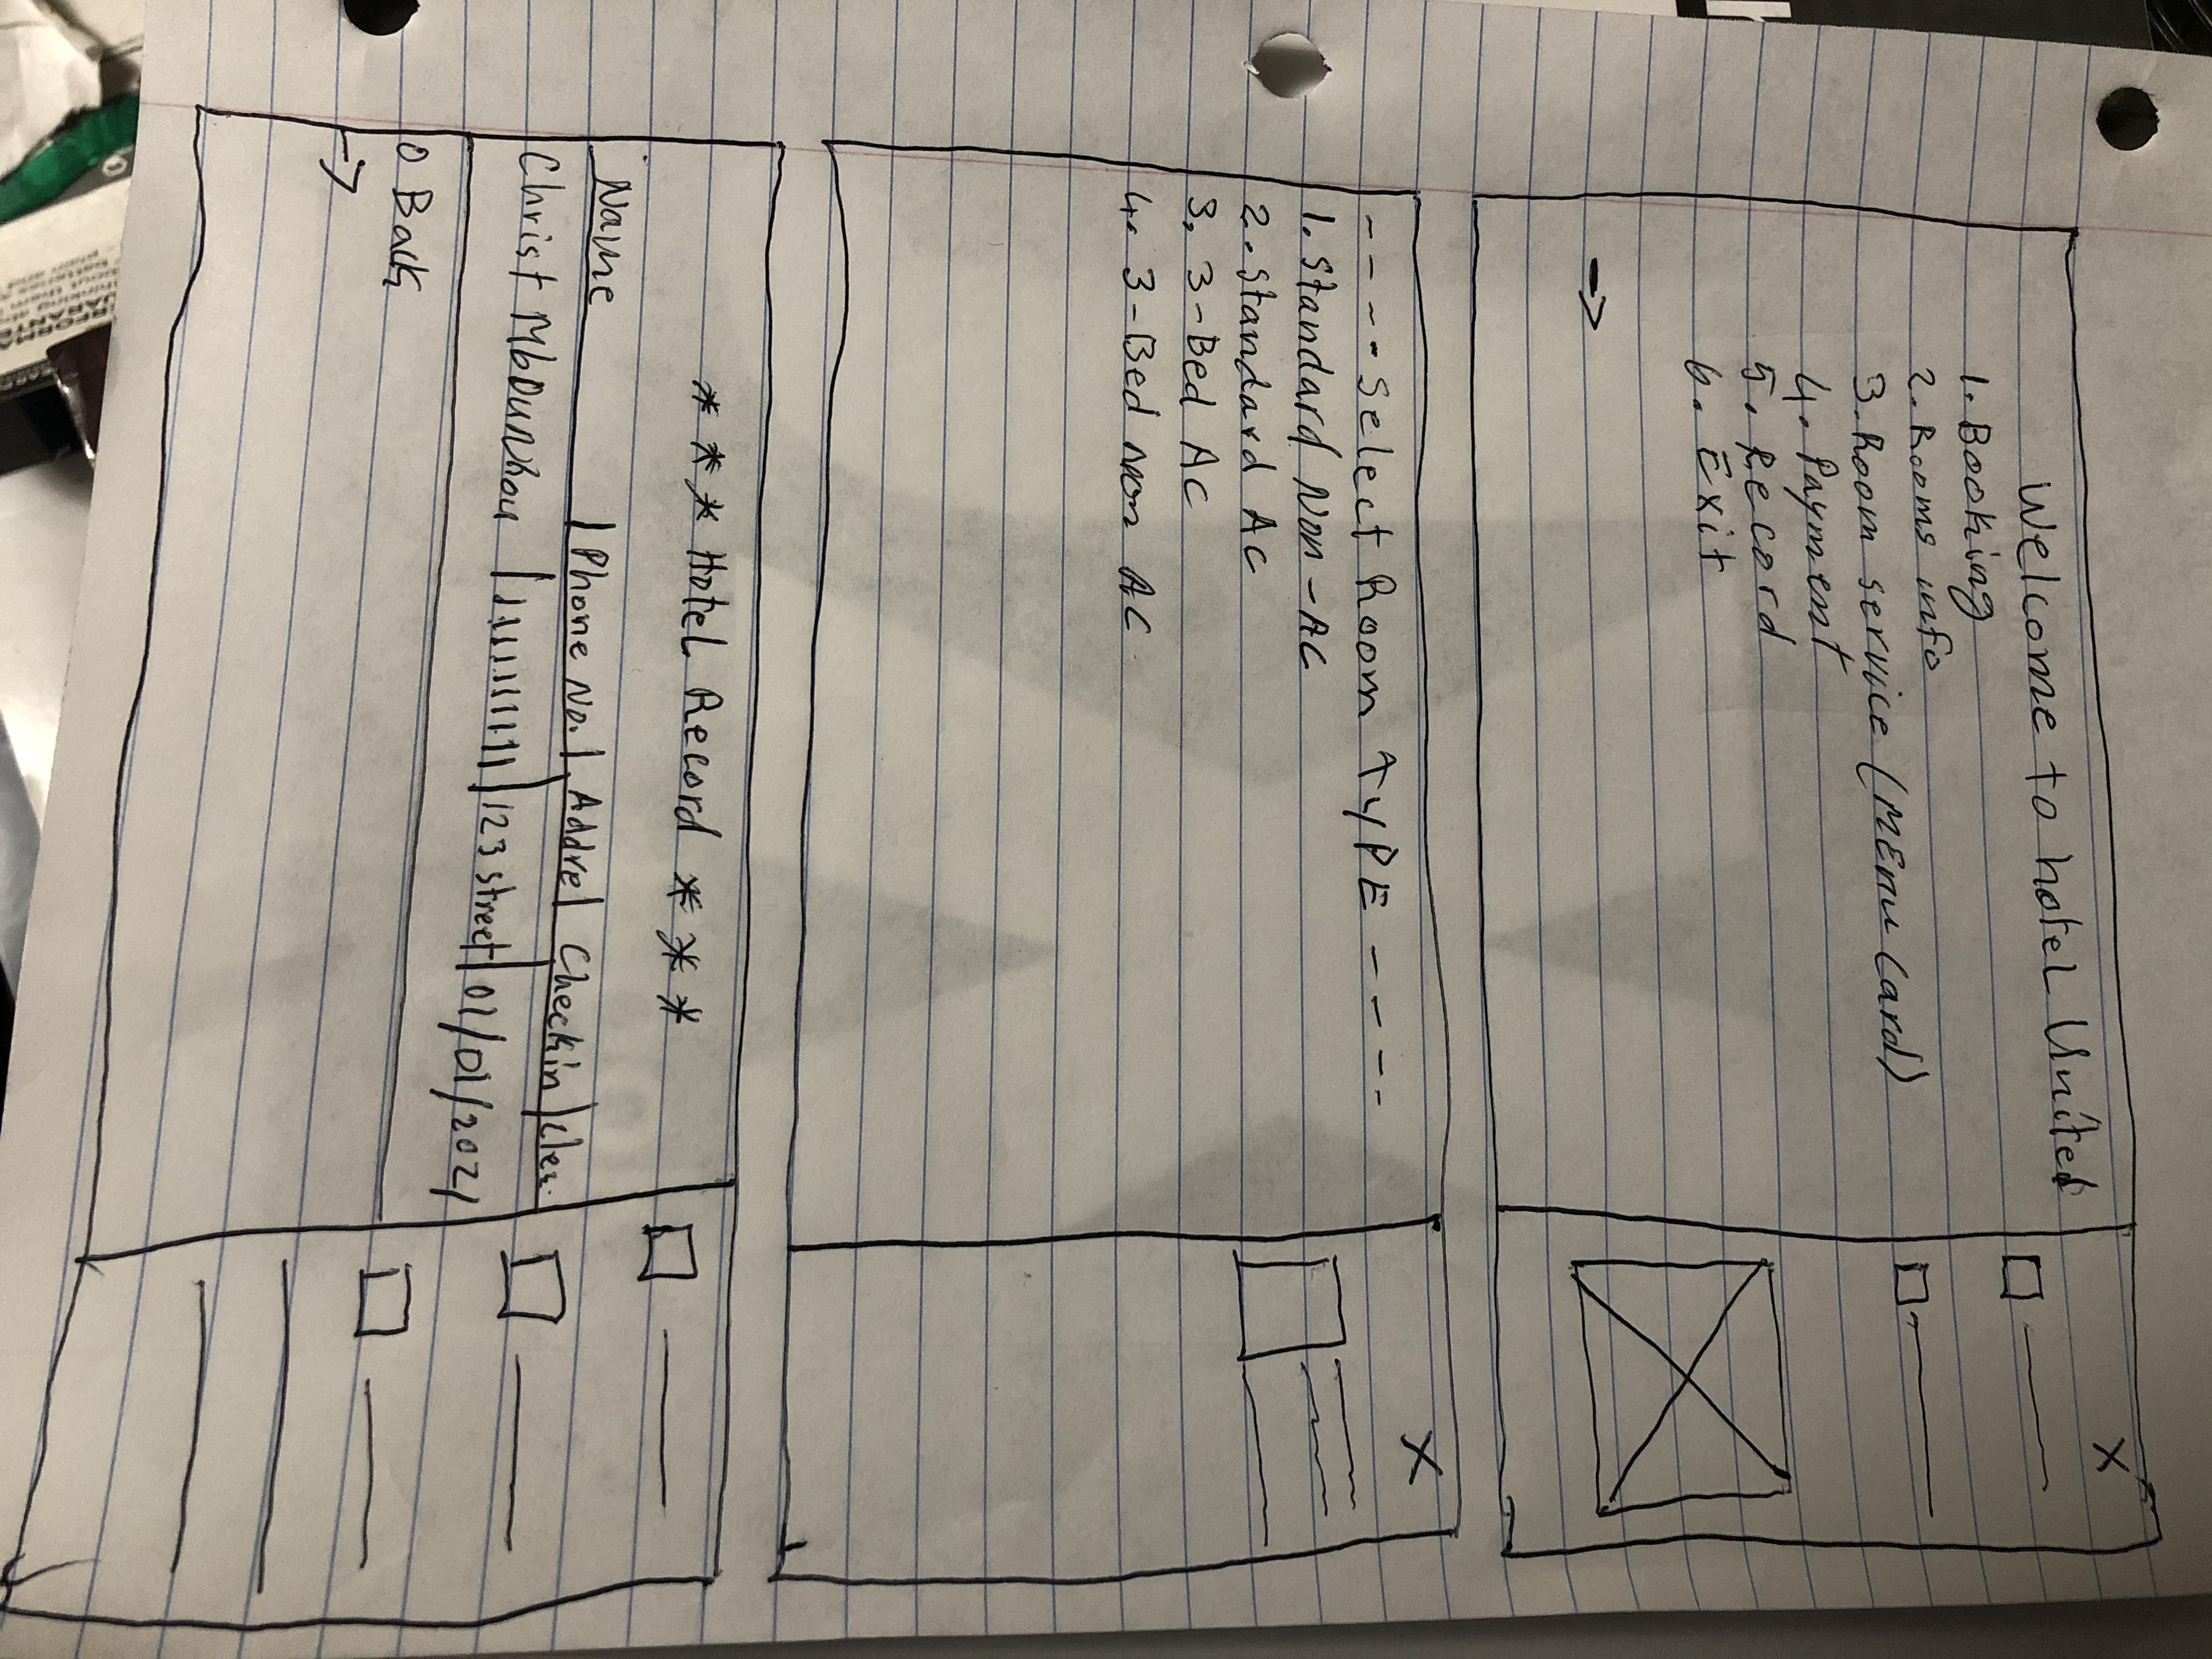 Welcome to hotel United
1. Booking
2. Rooms info
3. Room service (MEnu Card)
4. Payment
5. Record
6. Exit
->
X
----Select Room TYPE ----
1. Standard Non-AC
2. Standard AC
3. 3-Bed AC
4. 3-Bed Non AC
X
*** Hotel Record ***
Name | Phone No. | Addre| Checkin |
Christ | 1111111111 | 123 street| 01/01/2021
0 Back
->